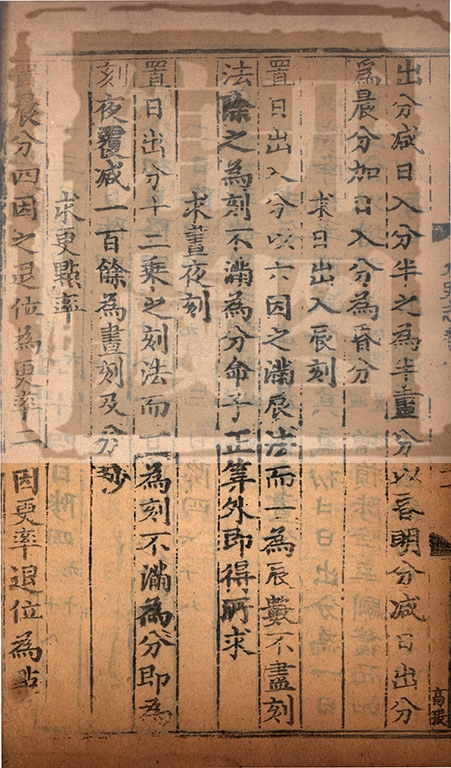 出分减日入分半之為半晝分以昏明分减日出分
為晨分加日入分為昏分
求日出入辰刻
置日出入分以六因之滿辰法而一為辰數不盡刻
法除之為刻不滿為分命子正筭外即得所求
求晝夜刻
置日出分十二乘之刻法而一為刻不滿為分即為
刻夜覆减一百餘為晝刻及分秒
求更點率
置晨分四因之退位為更率二因更率退位為點